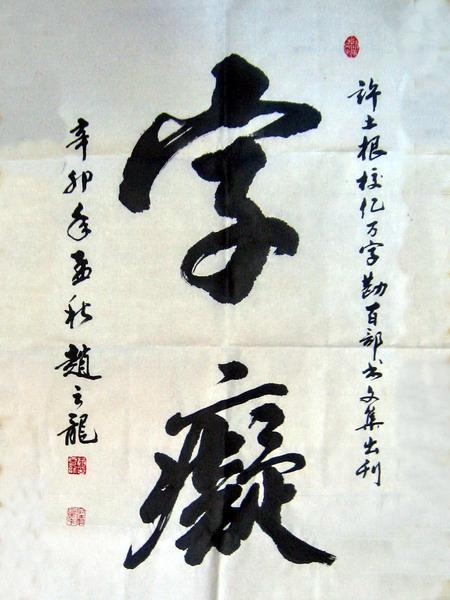 許土根校亿万字勘百部书文集出刊
字癡
辛卯年孟秋趙云龍